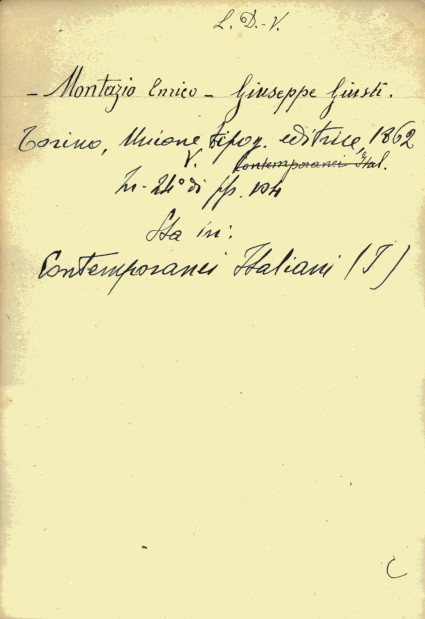 L. D.-V.
- Montazio Enrico - Giuseppe Giusti.
Torino, Unione tipog. editrice, 1862
V. Contemporanei Ital.
In-24° di pp. 104
Sta in:
Contemporanei Italiani (I)
C